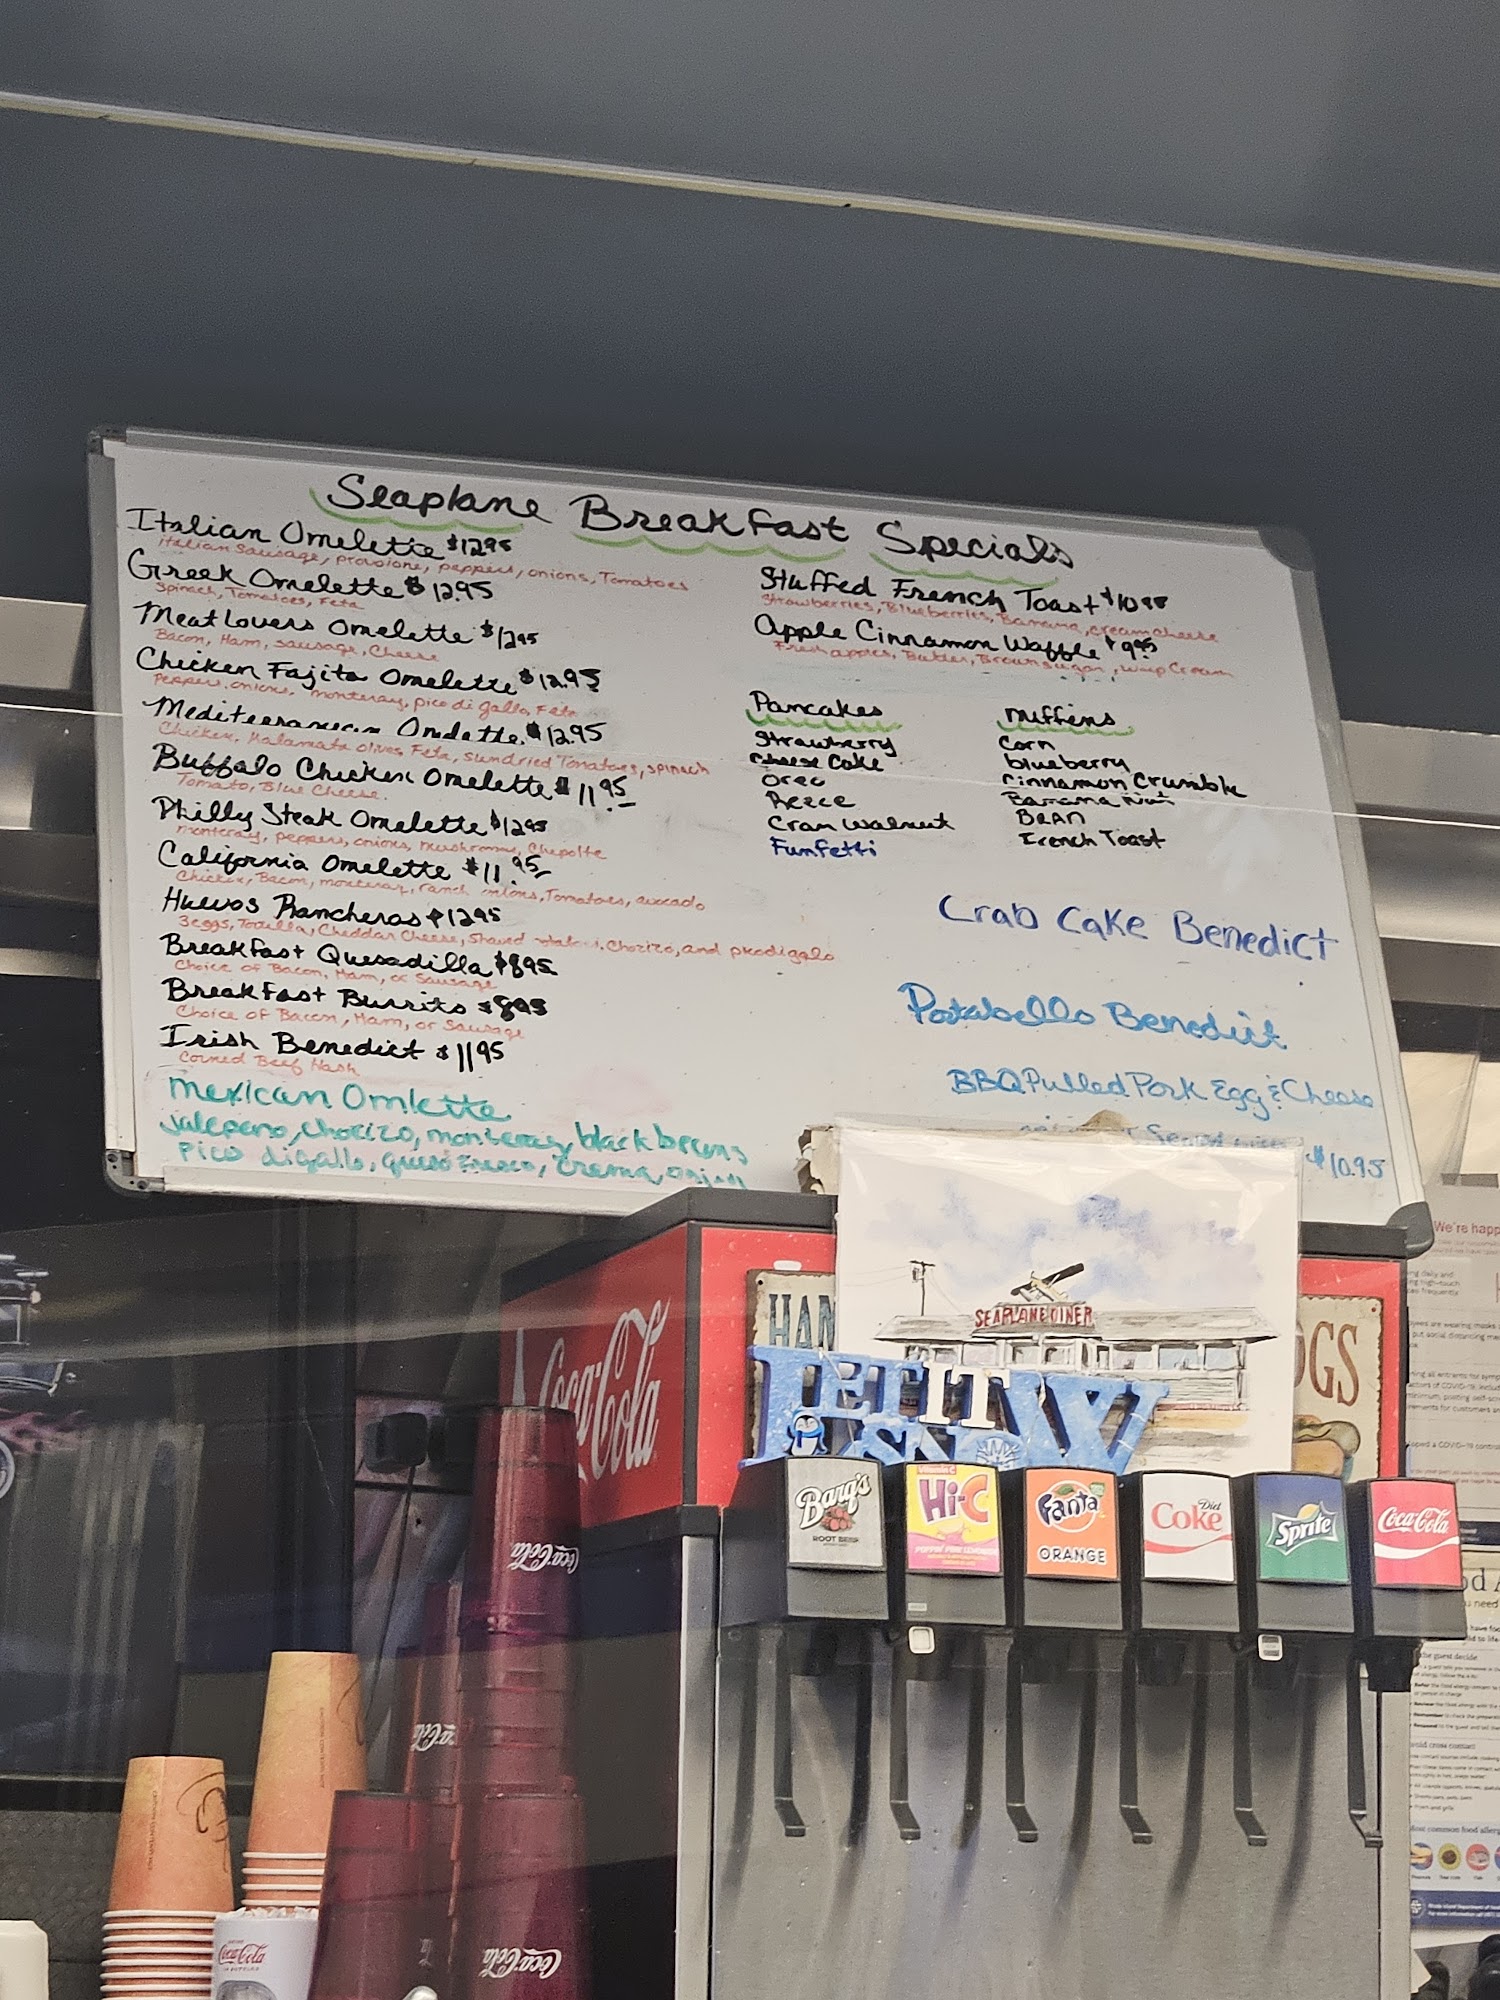 Seaplane Breakfast Specials
Italian Omelette $12.95
italian sausage, provolone, peppers, onions, Tomatoes
Greek Omelette $12.95
Spinach, Tomatoes, Feta
Meat Lovers Omelette $12.95
Bacon, Ham, sausage, Cheese
Chicken Fajita Omelette $12.95
Peppers, onions, monteray, pico di gallo, Feta
Mediterranean Omelette $12.95
Chicken, Kalamata olives, Feta, sundried Tomatoes, spinach
Buffalo Chicken Omelette $11.95
Tomato, Blue Cheese
Philly Steak Omelette $12.95
monteray, peppers, onions, mushrooms, Chipolte
California Omelette $11.95
Chicken, Bacon, monteray, ranch, onions, Tomatoes, avocado
Huevos Rancheros $12.95
3 eggs, Tortilla, Cheddar Cheese, Shaved Chorizo, and picodigallo
Breakfast Quesadilla $8.95
Choice of Bacon, Ham, or Sausage
Breakfast Burrito $8.95
Choice of Bacon, Ham, or Sausage
Irish Benedict $11.95
Corned Beef Hash
Mexican Omlette
Jalepeno, chorizo, monteray, black beans
pico digallo, queso fresco, crema, onion
Stuffed French Toast $10.95
Strawberries, Blueberries, Banana, creamcheese
Apple Cinnamon Waffle $9.95
Fresh apples, Butter, Brown sugar, whip Cream
Pancakes
Strawberry
Cheese Cake
Oreo
Reece
Cran Walnut
Funfetti
Muffins
Corn
blueberry
Cinnamon Crumble
Banana Nut
Bran
French Toast
Crab Cake Benedict
Potabello Benedict
BBQ Pulled Pork Egg & Cheese
$10.95
SEAPLANE DINER
HAN
OGS
LET IT
SNOW
Coca-Cola
Barq's
ROOT BEER
Hi-C
Fanta
ORANGE
Diet
Coke
Sprite
Coca-Cola
Coca-Cola
Coca-Cola
Coca-Cola
Coca-Cola
We're happ
the guest decide
avoid cross contact
Most common food allerg